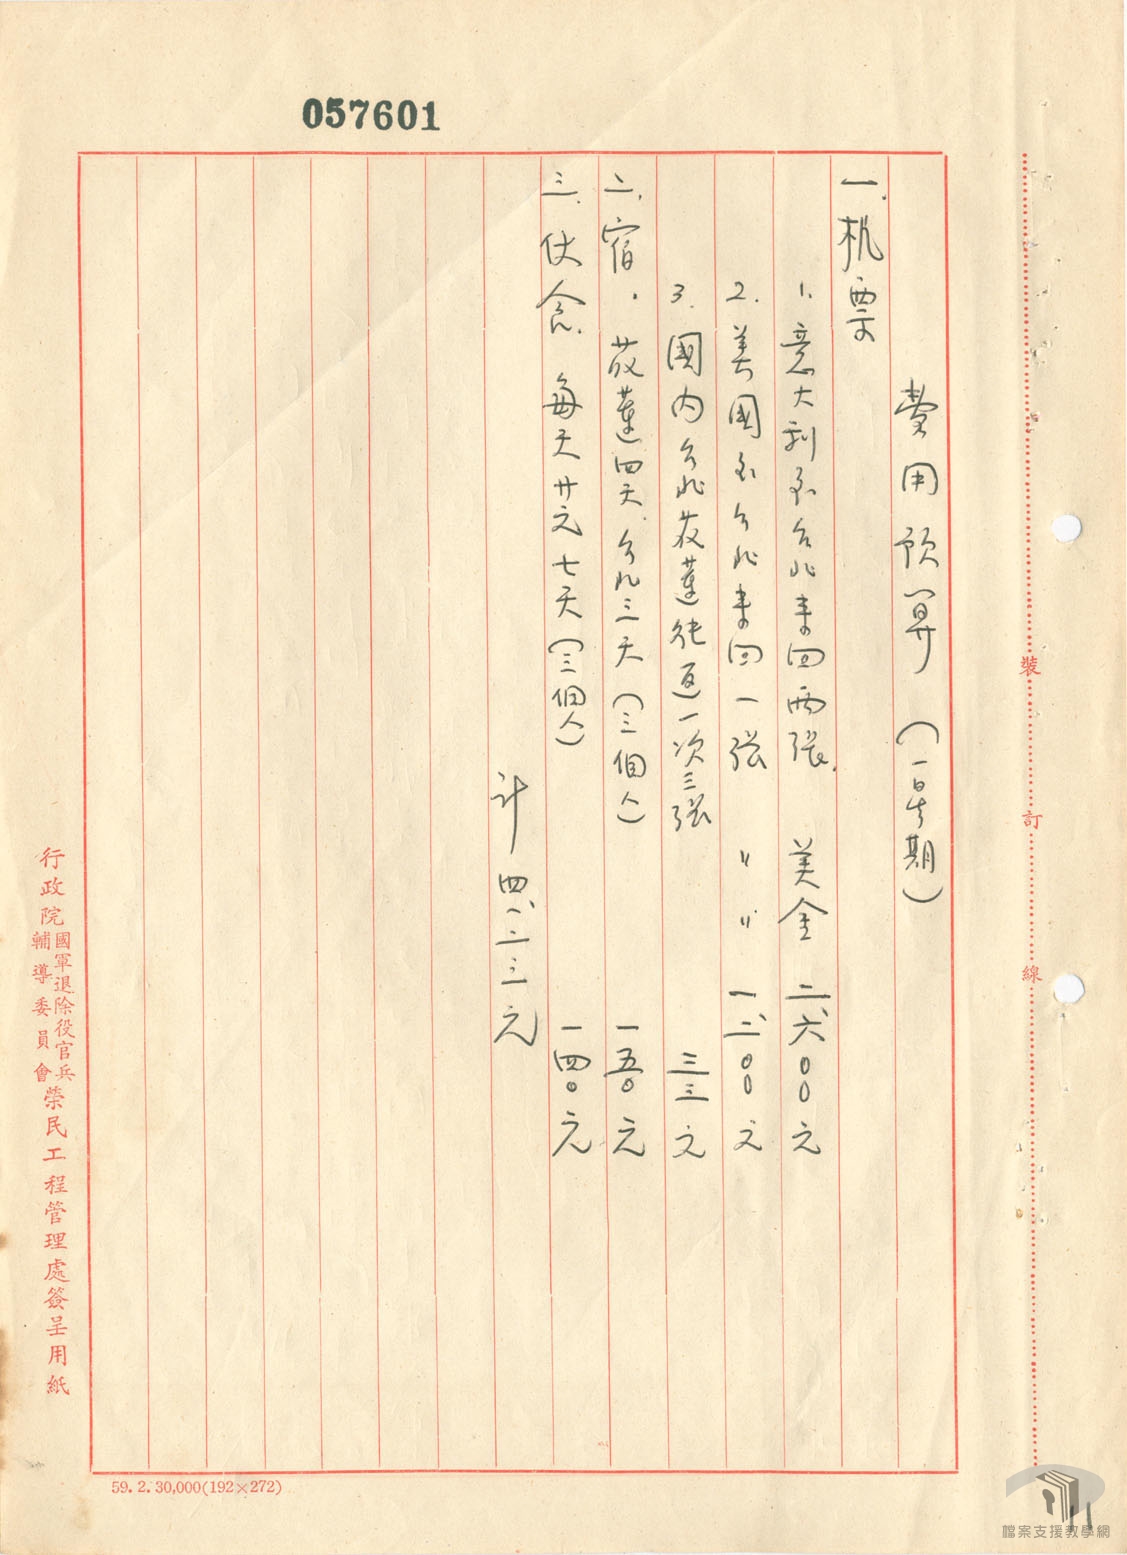 057601
費用預算(一星期)
一.机票
1.意大利至台北来回两張.美金二、六〇〇元
2.美國至台北来回一張〃〃一、二〇〇元
3.國内台北花蓮往返一次三張三三元
二.宿.花蓮四天.台北三天(三個人)一五〇元
三.伙食.每天廿元七天(三個人)一四〇元
計四、一二三元
裝訂線
行政院國軍退除役官兵輔導委員會榮民工程管理處簽呈用紙
59. 2. 30,000(192×272)
檔案支援教學網